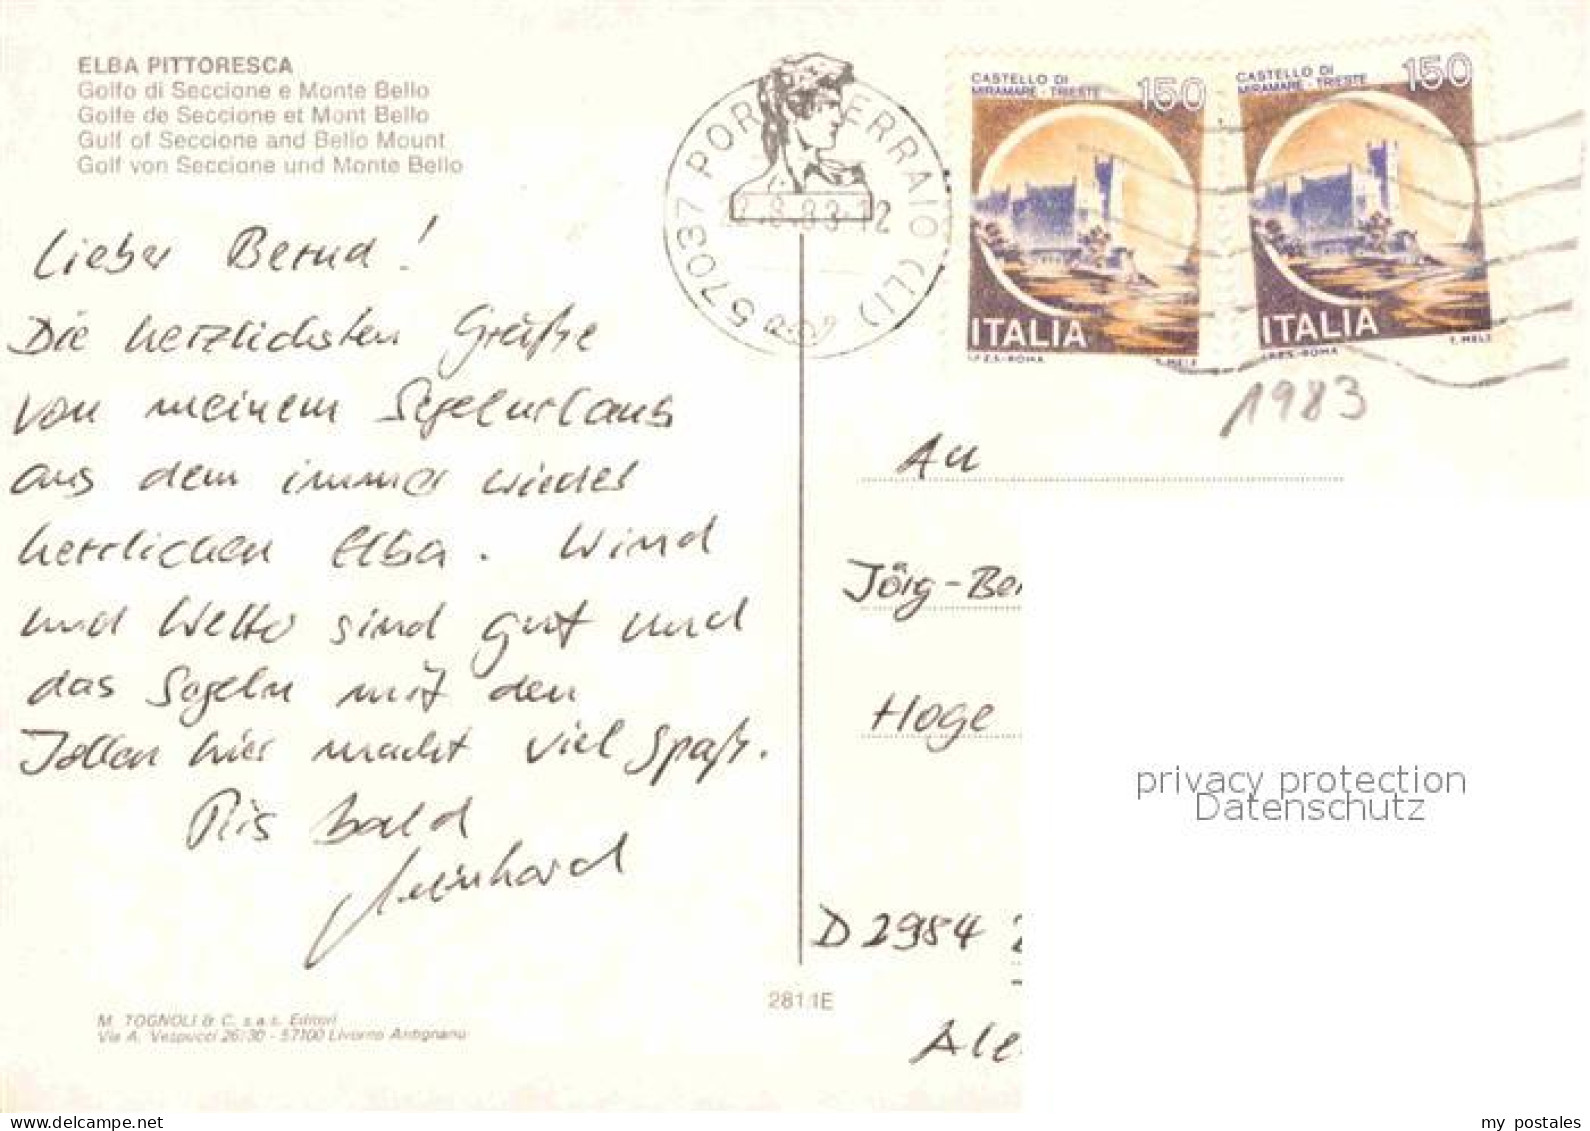 ELBA PITTORESCA
Golfo di Seccione e Monte Bello
Golfe de Seccione et Mont Bello
Gulf of Seccione and Bello Mount
Golf von Seccione und Monte Bello
Lieber Bernd!
Die herzlichsten Grüße
von meinem Segelurlaub
aus dem immer wieder
herrlichen Elba. Wind
und Wetter sind gut und
das Segeln mit den
Jollen hier macht viel Spaß.
Bis bald
Meinhard
M. TOGNOLI & C. s.a.s. Editori
Via A. Vespucci 26/30 - 57100 Livorno Antignano
2811E
57037 PORTOFERRAIO (LI)
12.8.83-12
CASTELLO DI
MIRAMARE - TRIESTE
150
ITALIA
I.P.Z.S. - ROMA
E. MELE
CASTELLO DI
MIRAMARE - TRIESTE
150
ITALIA
I.P.Z.S. - ROMA
E. MELE
1983
An
Jörg-Be
Hoge
D 2984 2
Ale
privacy protection
Datenschutz
my postales